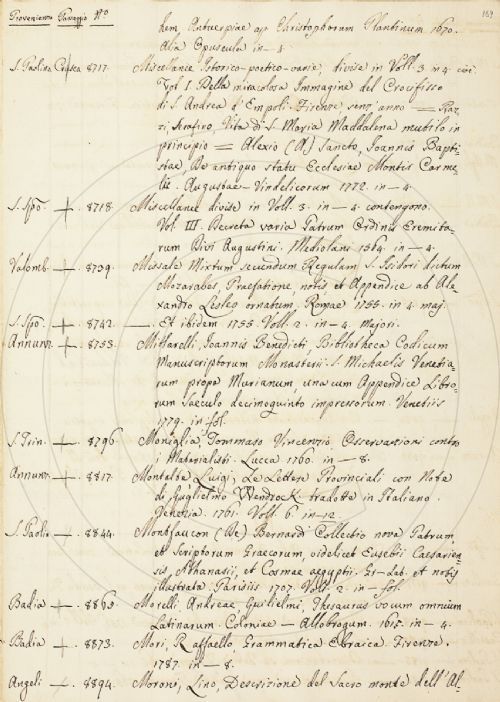 Provenienza Passaggio N.o 169
hem, Antuerpiae ap. Christophorum Plantinum 1670.
Alia Opuscula in — 4
S. Paolino Crusca 8717. Miscellanee Istorico-poetico-varie, divise in Voll. 3. in 4. cioè
Vol I. Della miracolosa Immagine del Crocifisso
di S. Andrea d'Empoli. Firenze senz'anno = Raz-
zi Serafino, Vita di S. Maria Maddalena mutilo in
principio = Alexio (A) Sancto, Joannis Bapti-
stae, De antiquo statu Ecclesiae Montis Carme-
li. Augustae-Vindelicorum 1772. in — 4.
S. Spo. + 8718. Miscellanee divise in Voll. 3. in — 4. contengono.
Vol. III. Decreta varia Patrum Ordinis Eremita-
rum Divi Augustini. Mediolani 1584. in — 4.
Valomb. + 8739. Missale Mixtum secundum Regulam S. Isidori dictum
Mozarabes, Praefatione, notis et Appendice ab Ale-
xandro Lesleo ornatum. Romae 1755. in 4. maj.
S. Spo. + 8742. —. Et ibidem 1755. Voll. 2. in — 4. Majori.
Annunz. + 8753. Mittarelli, Joannis Benedicti, Bibliotheca Codicum
Manuscriptorum Monasterii S. Michaelis Venetia-
rum prope Murianum, una cum Appendice Libro-
rum Saeculo decimoquinto impressorum. Venetiis
1779. in fol.
S. Trin. + 8796. Moniglia, Tommaso Vincenzio. Osservazioni contro
i Materialisti. Lucca 1760. in — 8.
Annunz. + 8817. Montalbe Luigi, Le Lettere Provinciali con Note
di Guglielmo Wendrock tradotte in Italiano.
Venezia. 1761. Voll. 6. in — 12.
S. Paolo — 8844. Montfaucon (De) Bernardi Collectio nova Patrum,
et Scriptorum Graecorum, videlicet Eusebii Caesarien-
sis, Athanasii, et Cosmae aegyptii. Gr-Lat. et notis
illustrata. Parisiis 1707. Voll. 2. in — fol.
Badia + 8865. Morelli, Andreae, Guilielmi, Thesaurus vocum omnium
Latinarum. Coloniae — Allobrogum. 1615. in — 4.
Badia + 8873. Mori, Raffaello, Grammatica Ebraica. Firenze.
1787. in — 8.
Angeli + 8894. Moroni, Lino, Descrizione del Sacro monte dell'Al-